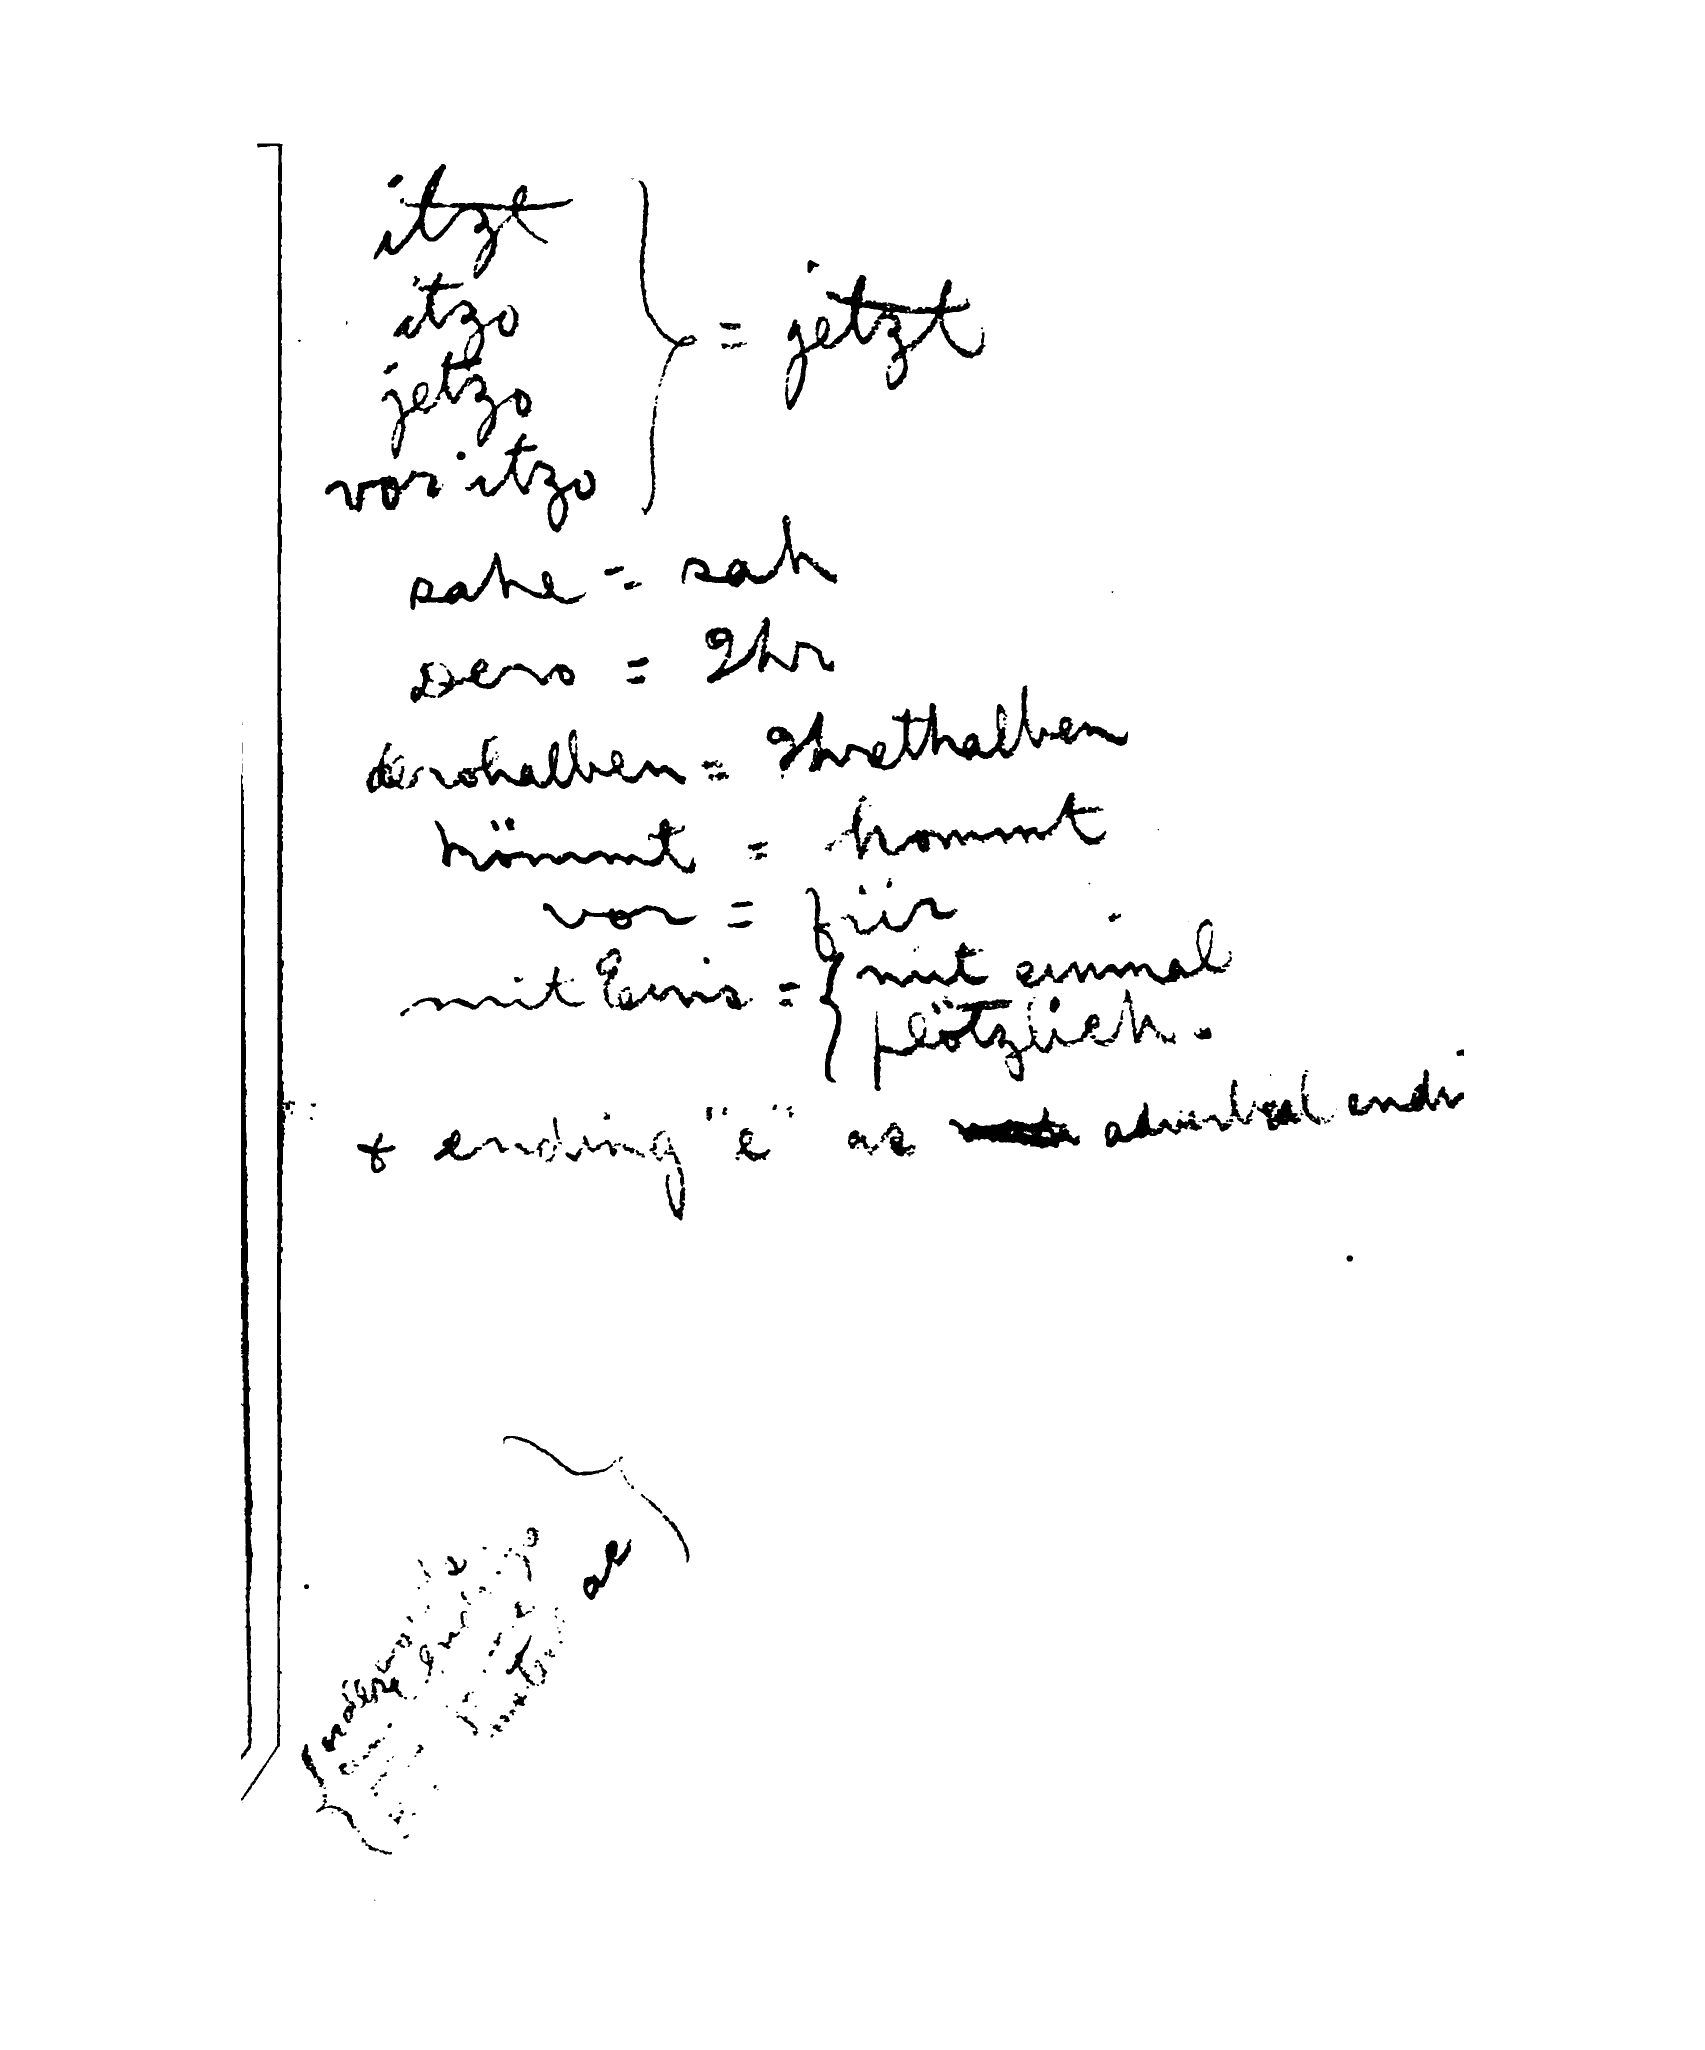 itzt
itzo
jetzo
vor itzo
} = jetzt
sahe = sah
Dero = Ihr
derohalben = Ihrethalben
kömmt = kommt
vor = für
mit Eins = { mit einmal
plötzlich.
+ ending "e" as adverbial endi